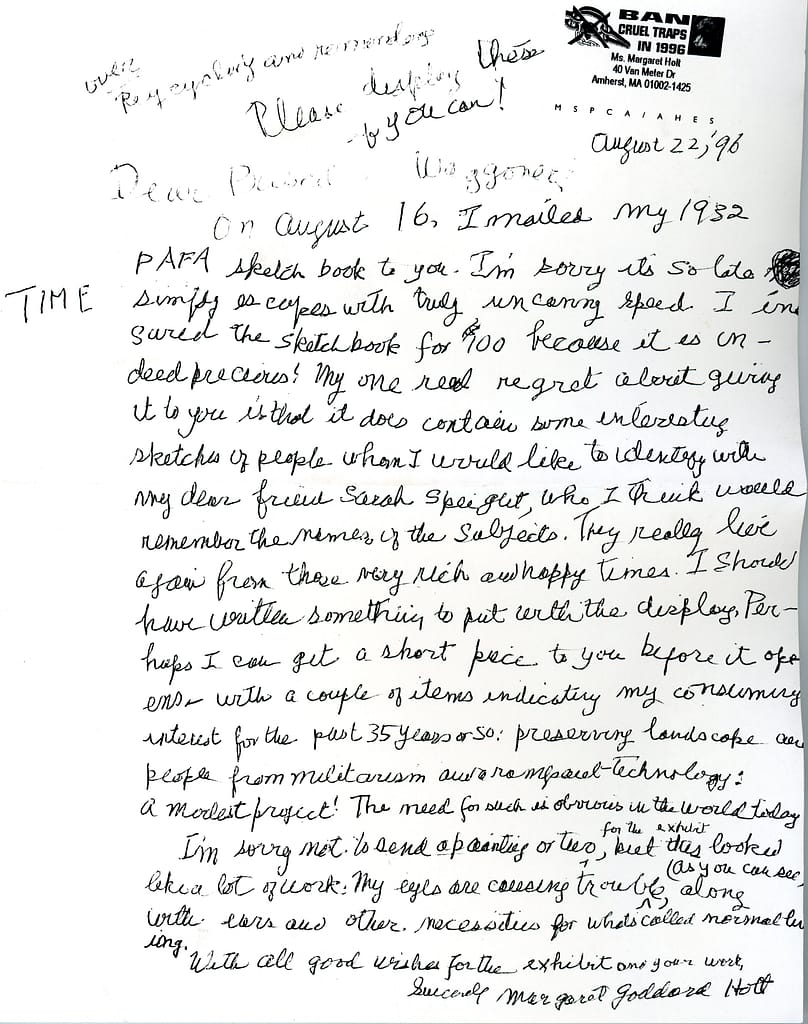 BAN
CRUEL TRAPS
IN 1996
Ms. Margaret Holt
40 Van Meter Dr
Amherst, MA 01002-1425
MSPCA/AHES
over
and
Please display these
if you can!
August 22, '96
Dear Waggoner
On August 16, I mailed my 1932
PAFA sketch book to you. I'm sorry its so late
TIME simply escapes with truly uncanny speed. I in
sured the sketchbook for $100 because it is in-
deed precious! My one real regret about giving
it to you is that it does contain some interesting
sketches of people whom I would like to identify with
my dear friend Sarah Speight, who I think would
remember the names of the subjects. They really live
again from those very rich and happy times. I should
have written something to put with the display. Per-
haps I can get a short piece to you before it op
ens - with a couple of items indicating my consuming
interest for the past 35 years or so: preserving landscape and
people from militarism and rampant technology:
a modest project! The need for such is obvious in the world today
I'm sorry not to send a painting or two, for the exhibit but this looked
like a lot of work. My eyes are causing trouble, (as you can see, along
with ears and other necessities for what's called normal liv
ing.
With all good wishes for the exhibit and your work,
Sincerely Margaret Goddard Holt